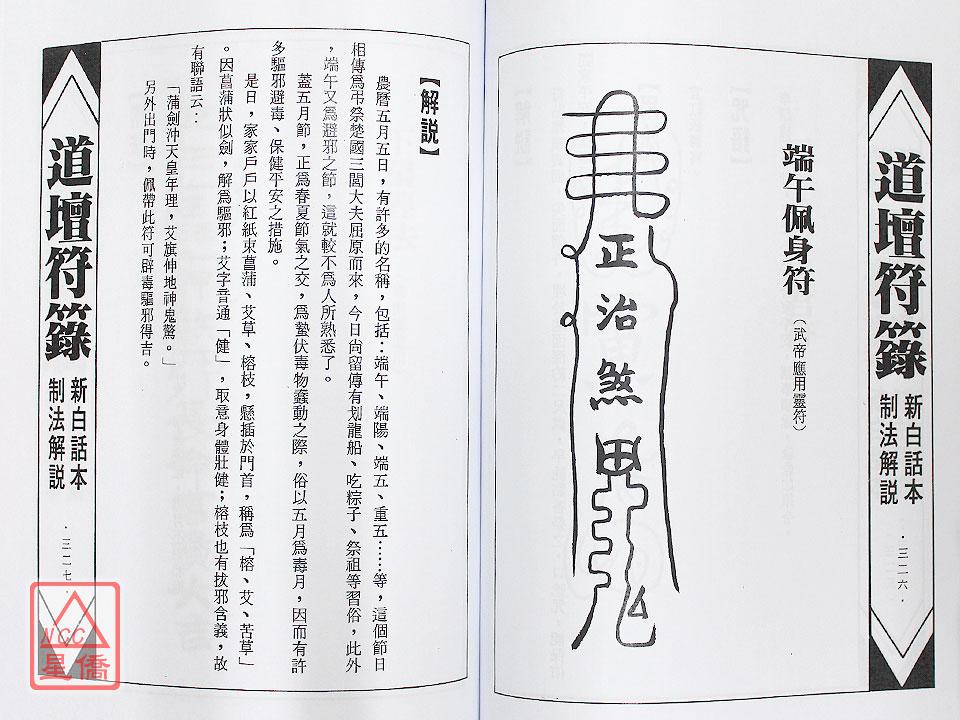 道壇符籙
新白話本
制法解説
·三二六·
端午佩身符
(武帝應用靈符)
正治煞
【解説】
農曆五月五日,有許多的名稱,包括:端午、端陽、端五、重五……等,這個節日
相傳爲弔祭楚國三閭大夫屈原而來,今日尚留傳有划龍船、吃粽子、祭祖等習俗,此外
,端午又爲避邪之節,這就較不爲人所熟悉了。
蓋五月節,正爲春夏節氣之交,爲蟄伏毒物蠢動之際,俗以五月爲毒月,因而有許
多驅邪避毒、保健平安之措施。
是日,家家戶戶以紅紙束菖蒲、艾草、榕枝,懸插於門首,稱爲「榕、艾、苦草」
。因菖蒲狀似劍,解爲驅邪;艾字音通「健」,取意身體壯健;榕枝也有拔邪含義,故
有聯語云:
「蒲劍沖天皇年理,艾旗伸地神鬼驚。」
另外出門時,佩帶此符可辟毒驅邪得吉。
道壇符籙
新白話本
制法解説
·三二七·
NCC
星僑